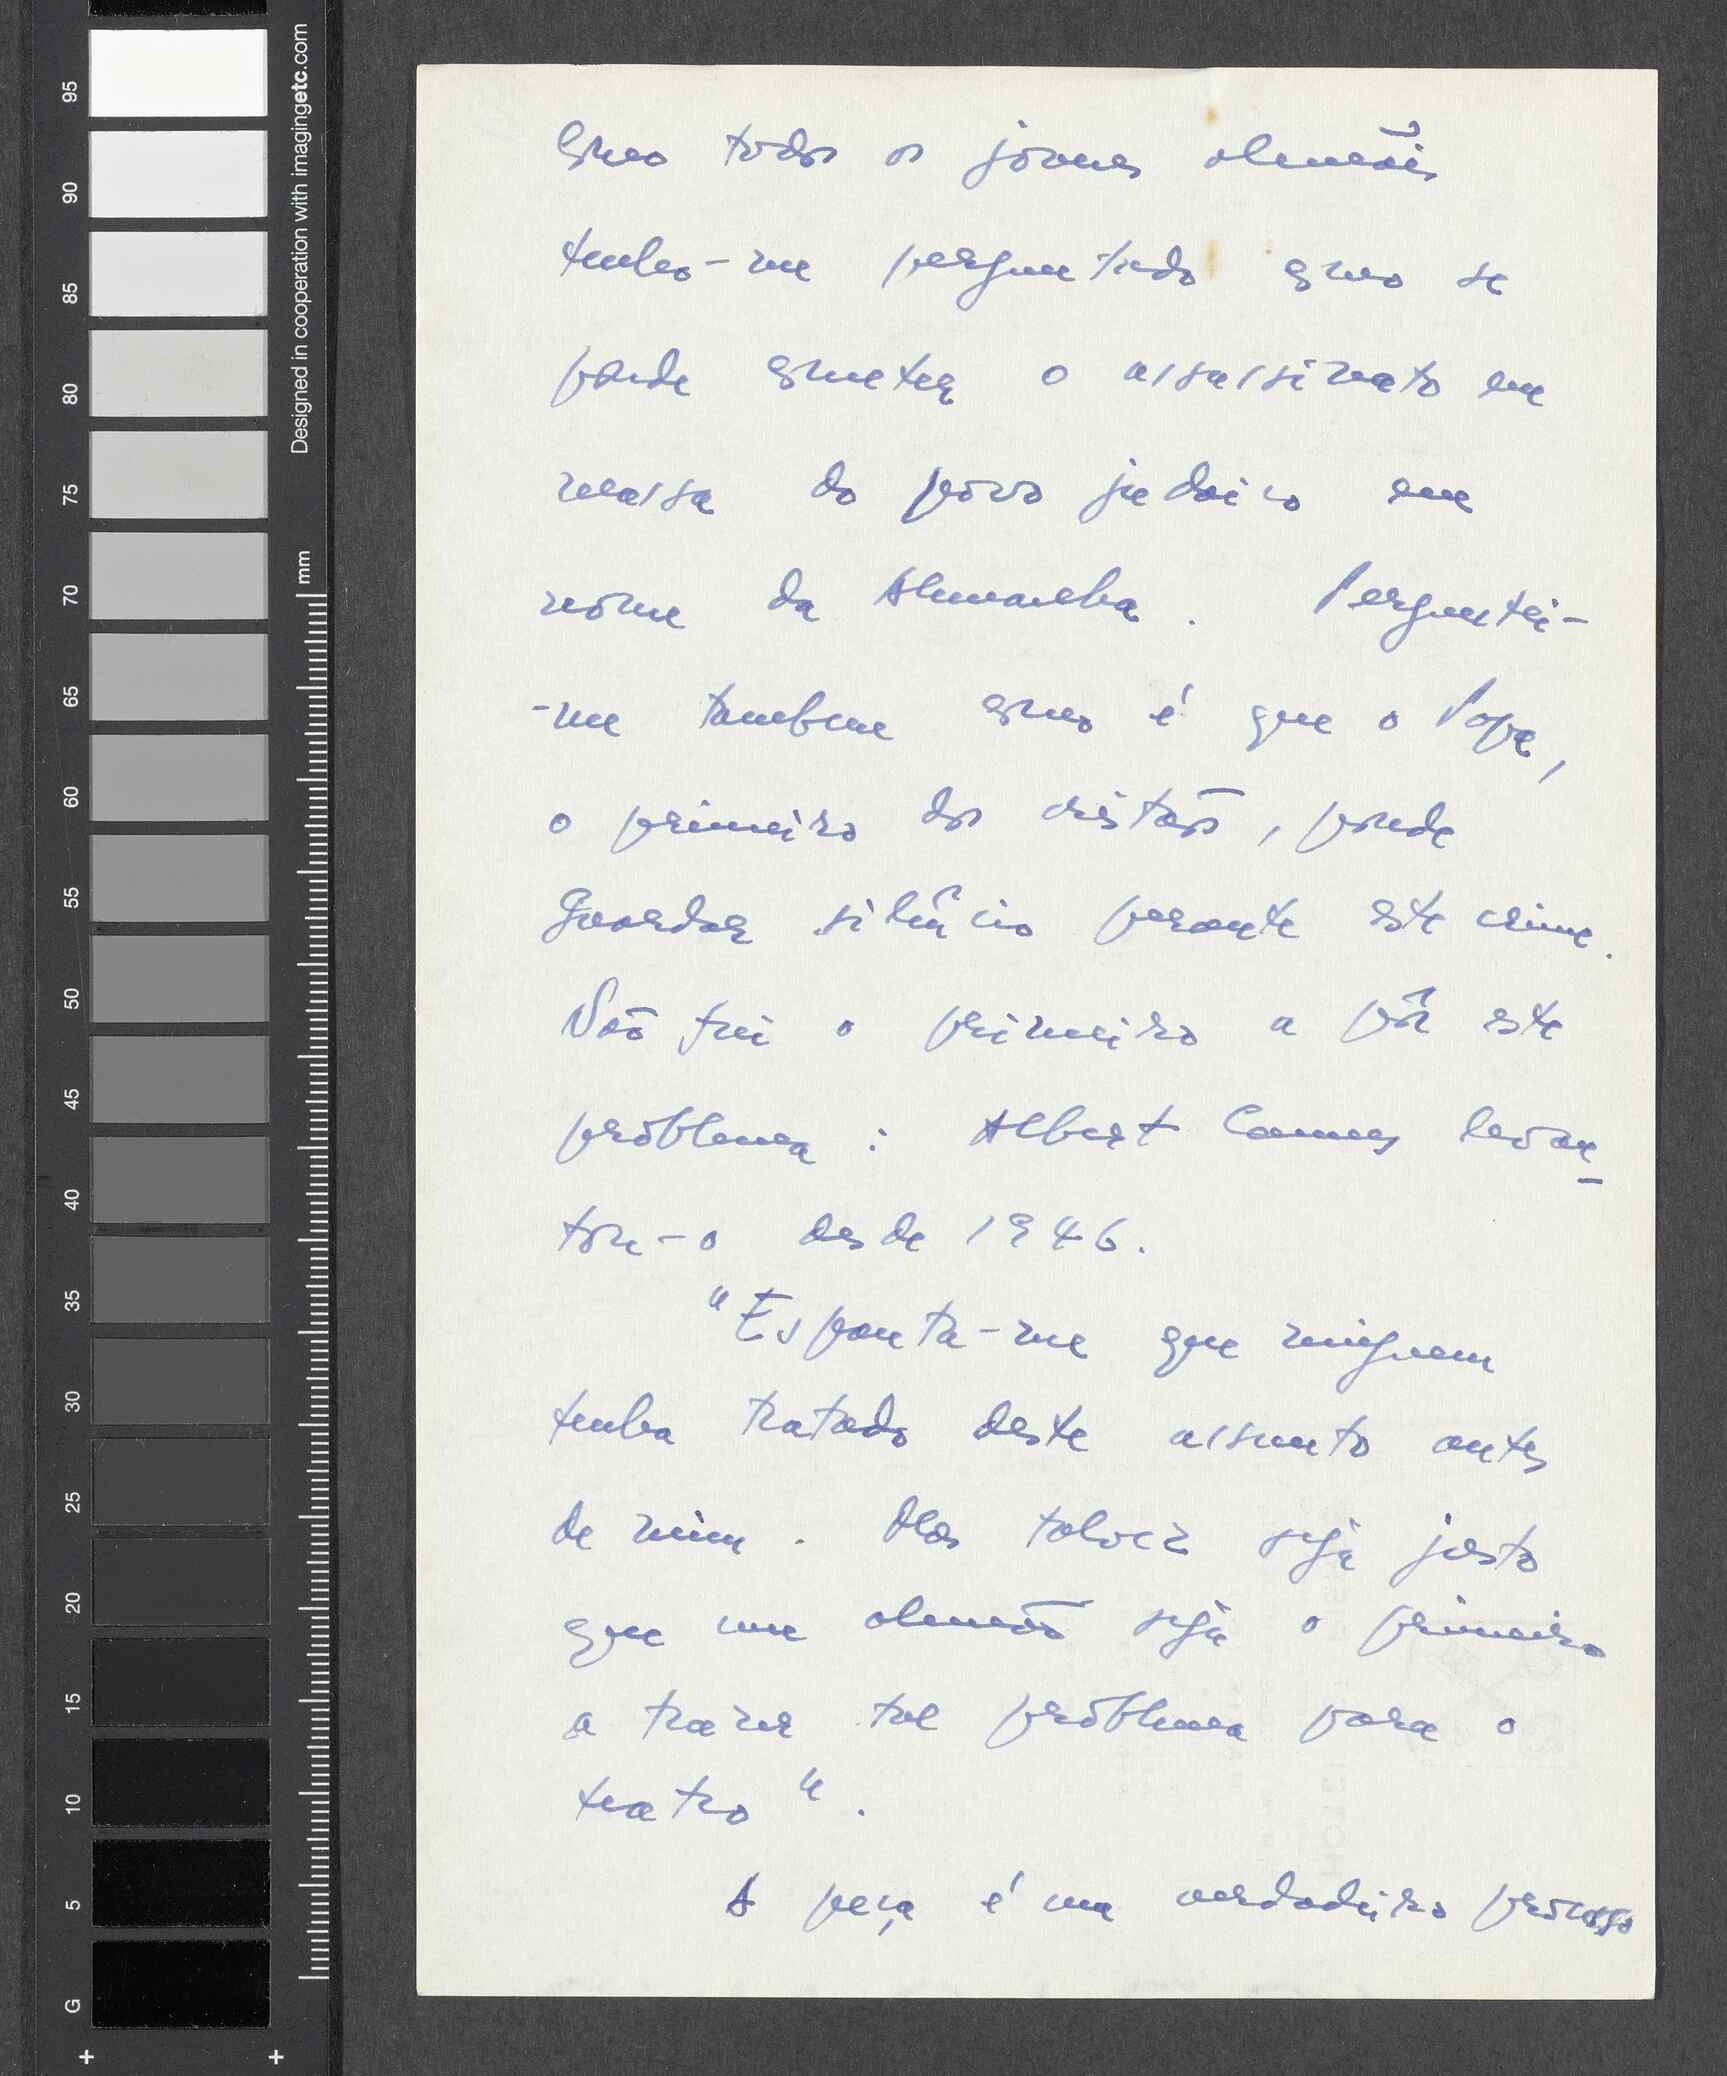 Como todos os jovens alemães
tenho-me perguntado como se
poude cometer o assassinato em
massa do povo judaico em
nome da Alemanha. Perguntei-
-me tambem como é que o Papa,
o primeiro dos cristãos, poude
guardar silêncio perante este crime.
Não fui o primeiro a pôr este
problema: Albert Camus levan-
tou-o desde 1946.
"Espanta-me que ninguem
tenha tratado deste assunto antes
de mim. Mas talvez seja justo
que um alemão seja o primeiro
a trazer tal problema para o
teatro".
A peça é um verdadeiro processo
95
90
85
80
75
70
65
60
55
50
45
40
35
30
25
20
15
10
5
G
mm
Designed in cooperation with imagingetc.com